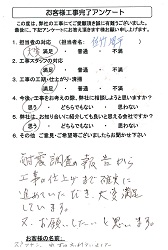 お客様工事完了アンケート
この度は、弊社の工事にてご愛顧頂き誠に有難うございました。
最後に、下記アンケートにお答え頂きます様お願い申し上げます。
1. 担当者の対応 (担当者名:
満足 ・ 普通 ・ 不満
2. 工事スタッフの対応
満足 ・ 普通 ・ 不満
3. 工事の工期・仕上がり・清掃
満足 ・ 普通 ・ 不満
4. 今後、工事をお考えの際、弊社に相談しようと思いますか?
思う ・ どちらでもない ・ 思わない
5. 弊社を、お知り合いに紹介しても良いと思われますか?
思う ・ どちらでもない ・ 思わない
6. その他、ご意見・ご希望等ございましたらお聞かせ下さい
耐震調査の報告から
工事の仕上がりまで確実に
進めていただき、大変満足
しています。
又、お願いしたいと思います。
お客様名